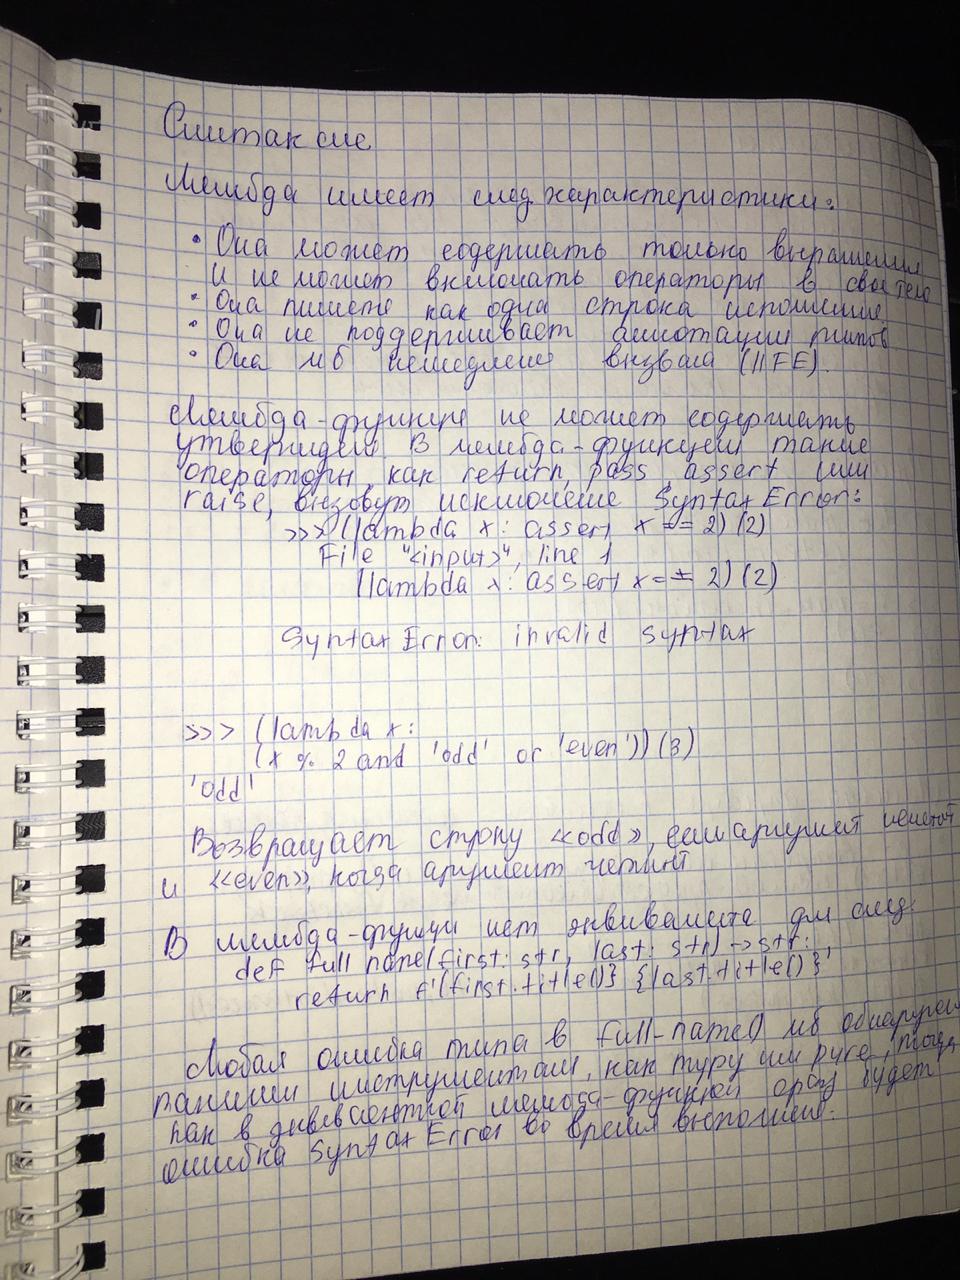 Синтаксис
Лямбда имеет след характеристики:
• Она может содержать только выражения
и не может включать операторы в свое тело
• Она пишется как одна строка исполнения.
• Она не поддерживает аннотации типов
• Она мб немедленно вызвана (IIFE).
Лямбда-функция не может содержать
утверждений В лямбда-функции такие
операторы, как return, pass, assert или
raise, вызовут исключение SyntaxError:
>>> (lambda x: assert x == 2) (2)
File "<input>", line 1
(lambda x: assert x == 2) (2)
SyntaxError: invalid syntax
>>> (lambda x:
(x % 2 and 'odd' or 'even')) (3)
'odd'
Возвращает строку «odd», если аргумент нечетный
и «even», когда аргумент четный
В лямбда-функции нет эквивалента для след:
def full name(first: str, last: str) -> str:
return f'{first.title()} {last.title()}'
Любая ошибка типа в full-name() мб обнаружена
такими инструментами, как mypy или pyre, тогда
как в эквивалентной лямбда-функцией сразу будет
ошибка SyntaxError во время выполнения.